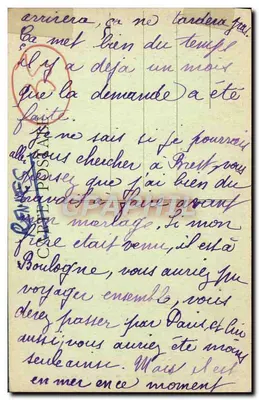 arrivera, ça ne tardera pas.
Ça met bien du temps
il y a déjà un mois
que la demande a été
faite.
Je ne sais si je pourrais
aller vous chercher à Brest, vous
pensez que j'ai bien du
à faire avant
mon mariage. Si mon
frère était venu, il est à
Boulogne, vous auriez pu
voyager ensemble, vous
devez passer par Paris, et lui
aussi, vous auriez été moins
seule ainsi. Mais il est
en mer en ce moment